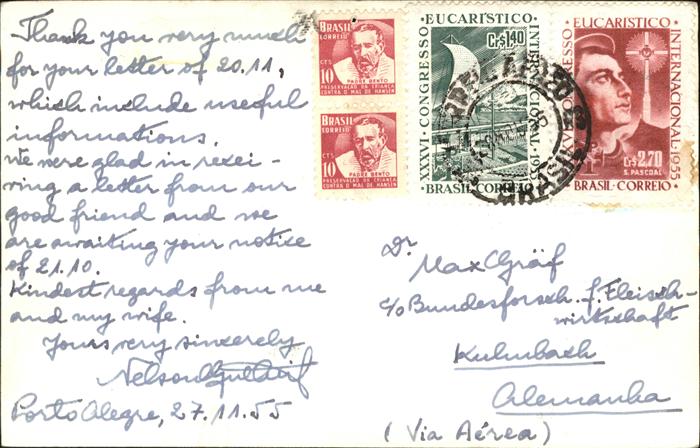 Thank you very much
for your letter of 20.11,
which include useful
informations.
We were glad in recei-
ving a letter from our
good friend and we
are awaiting your notice
of 21.10.
Kindest regards from me
and my wife.
Yours very sincerely
Nelson
Porto Alegre, 27.11.55
BRASIL
CORREIO
CTS
10
PADRE BENTO
PRESERVAÇÃO DA CRIANÇA
CONTRA O MAL DE HANSEN
BRASIL
CORREIO
CTS
10
PADRE BENTO
PRESERVAÇÃO DA CRIANÇA
CONTRA O MAL DE HANSEN
XXXVI CONGRESSO
EUCARÍSTICO
INTERNACIONAL 1955
Cr$ 1,40
BRASIL-CORREIO
XXXVI CONGRESSO
EUCARÍSTICO
INTERNACIONAL-1955
Cr$ 2,70
S. PASCOAL
BRASIL-CORREIO
BRASIL
Dr.
Max Gräf
c/o Bundesforsch. f. Fleisch-
wirtschaft
Kulmbach
Alemanha
(Via Aérea)